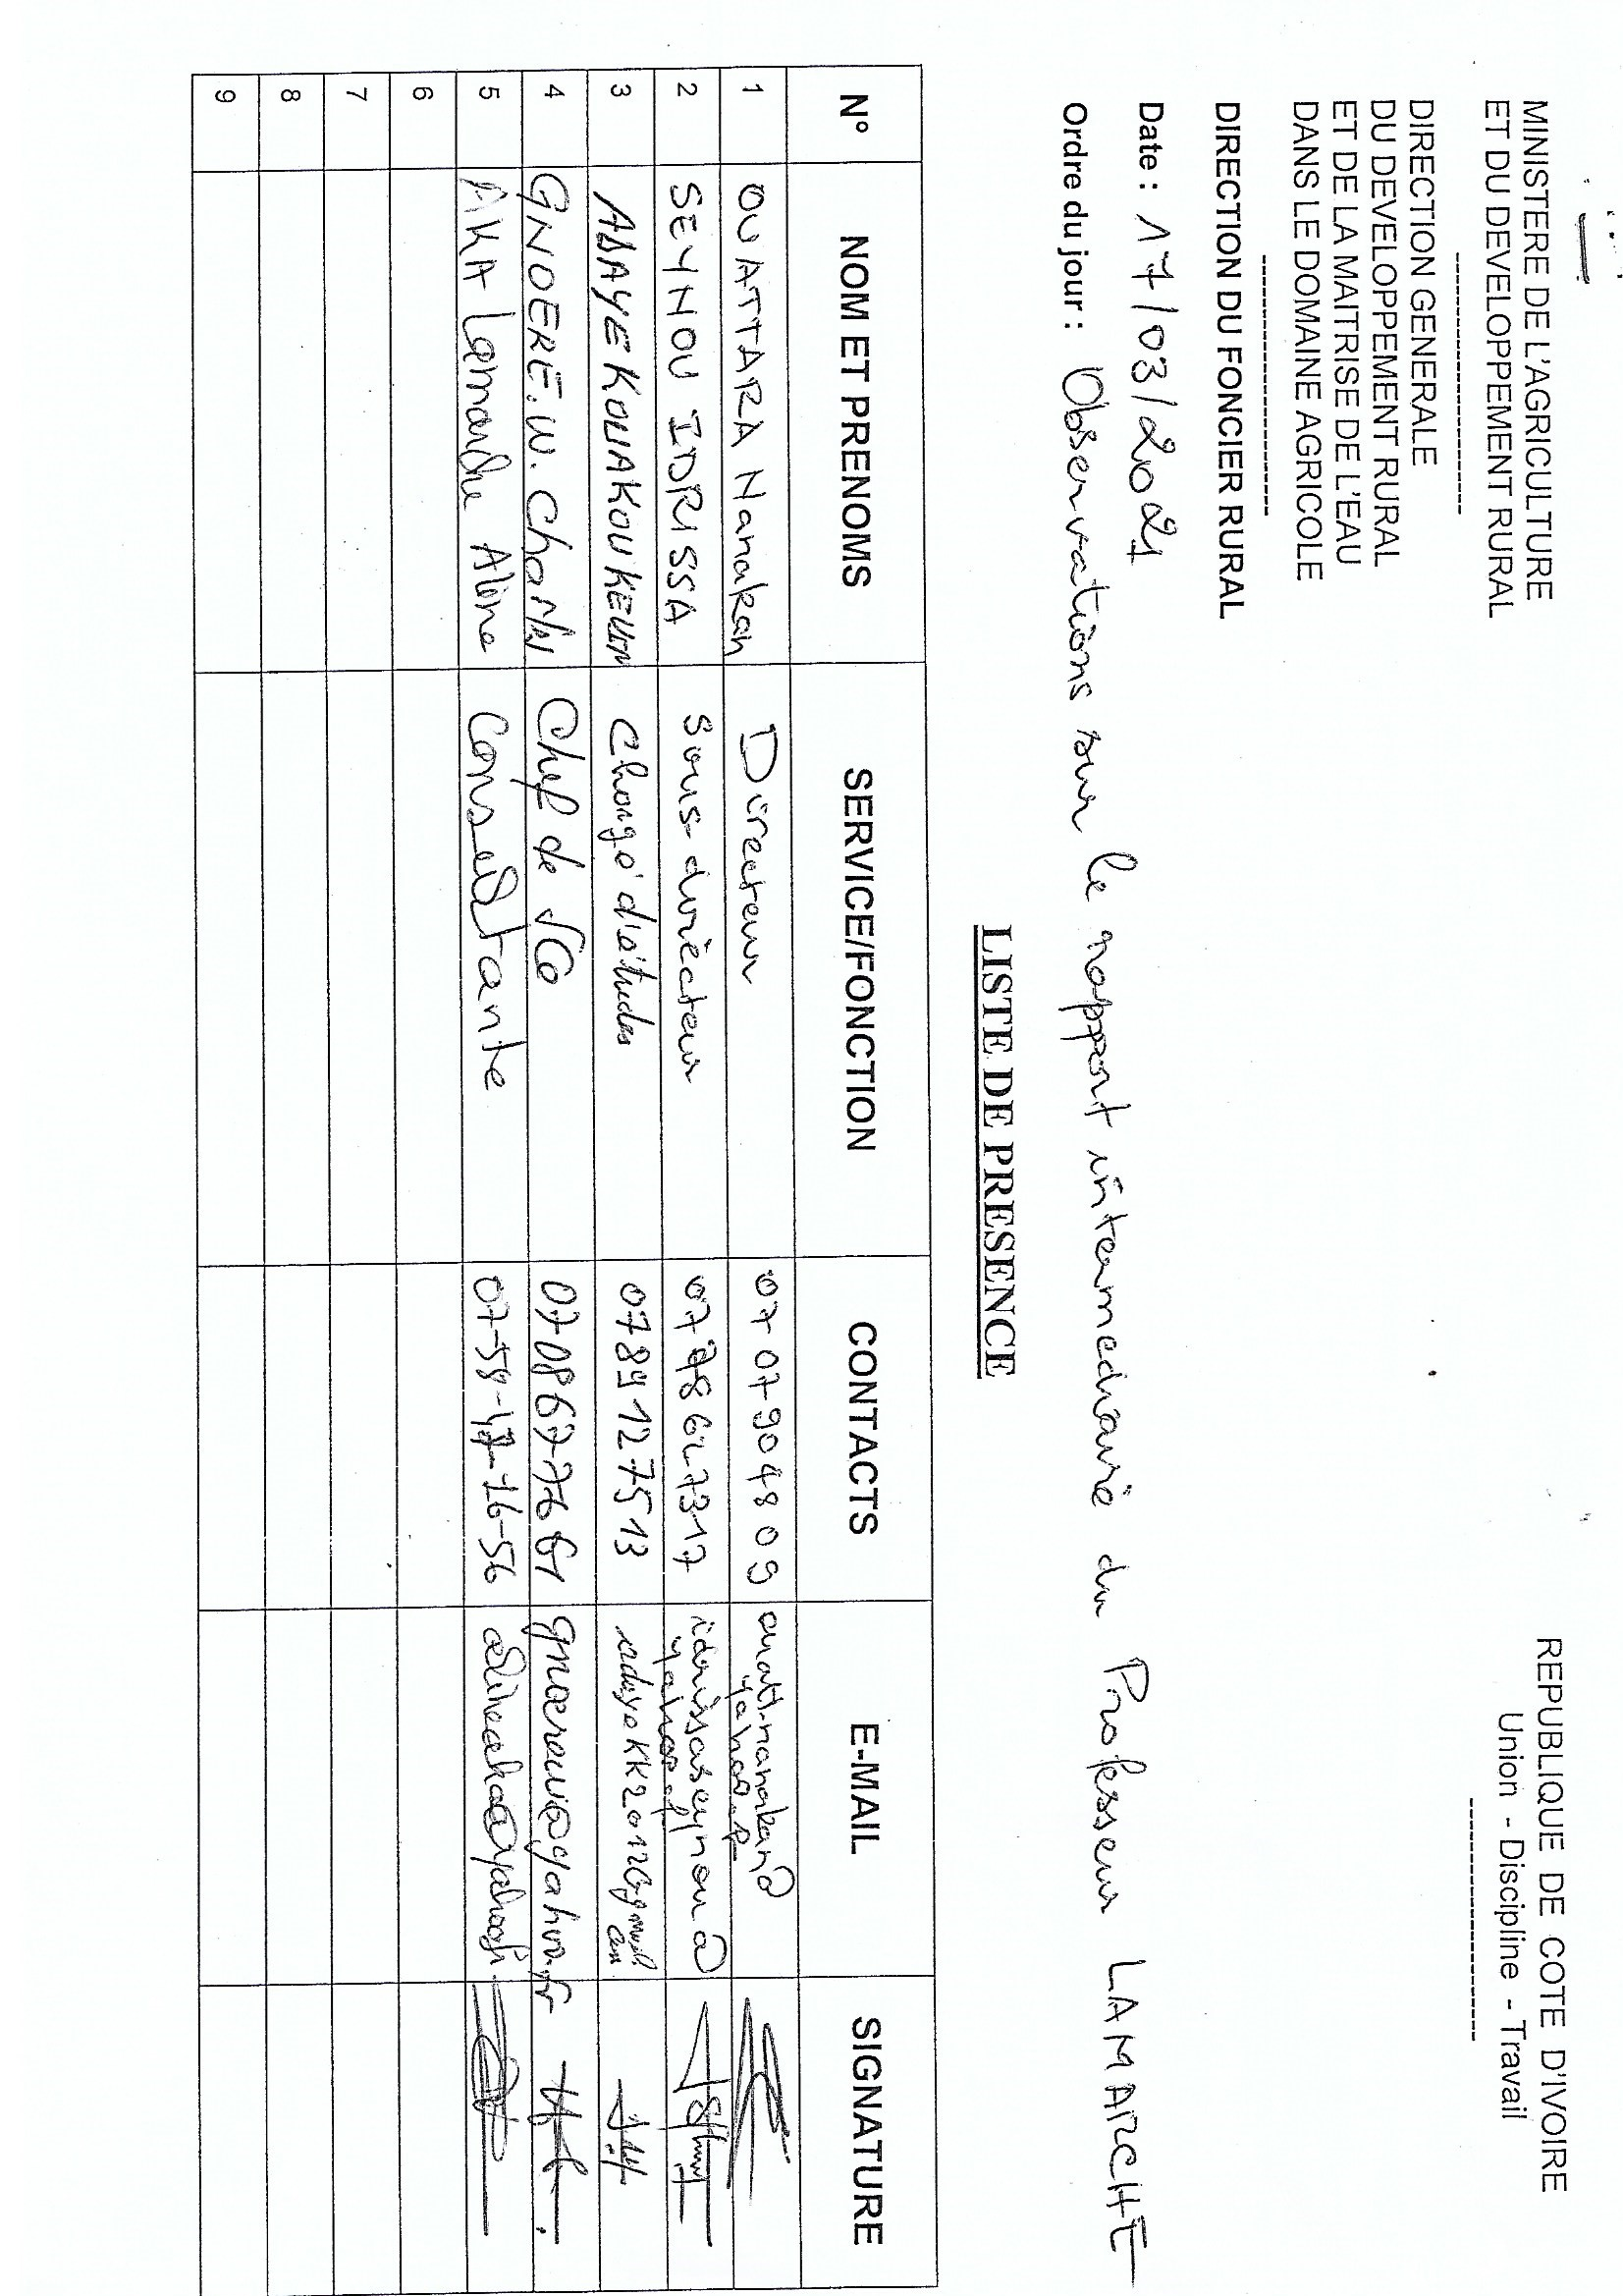 MINISTERE DE L'AGRICULTURE
ET DU DEVELOPPEMENT RURAL
DIRECTION GENERALE
DU DEVELOPPEMENT RURAL
ET DE LA MAITRISE DE L'EAU
DANS LE DOMAINE AGRICOLE
DIRECTION DU FONCIER RURAL
REPUBLIQUE DE COTE D'IVOIRE
Union - Discipline - Travail
Date : 17/03/2021
Ordre du jour : Observations sur le rapport intermédiaire du Professeur LAMARCHE
LISTE DE PRESENCE
N° NOM ET PRENOMS SERVICE/FONCTION CONTACTS E-MAIL SIGNATURE
1 OUATTARA Nanakan Directeur 07 07 90 48 09
2 SEYNOU IDRISSA Sous-directeur idrissaseynou@
3 ADAYE KOUAKOU Chargé d'études 0789127513 adayekk2012@gmail
4 GNOERE.W. Charles Chef de 0708677661
5 AKA Lamarche Aline Consultante alineaka@yahoo.fr
6
7
8
9